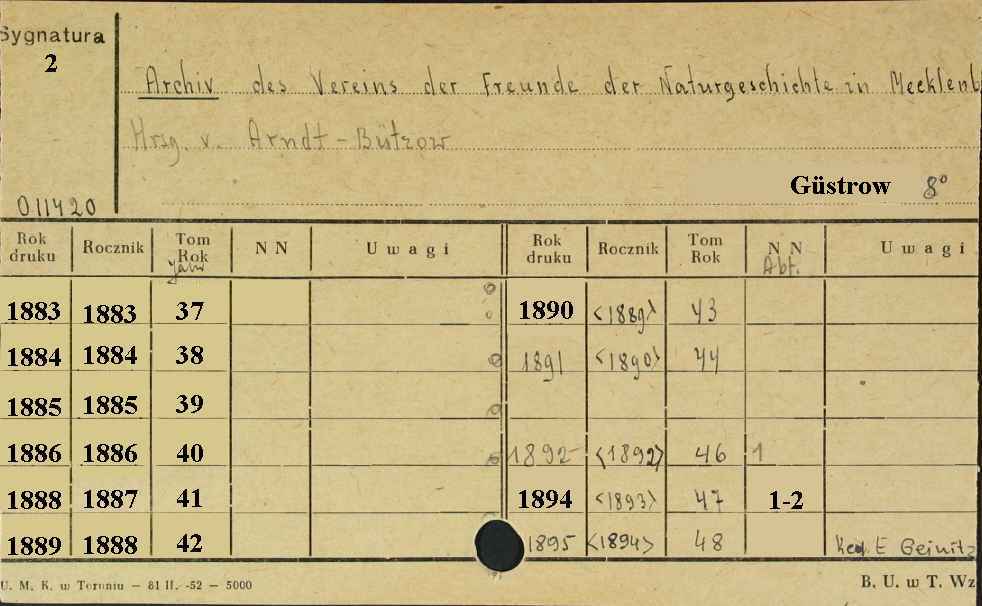 Sygnatura
2
Archiv des Vereins der Freunde der Naturgeschichte in Mecklenb
Hrsg. v. Arndt - Bützow
Güstrow 8°
011420
Rok druku Rocznik Tom Rok Jahr NN Uwagi Rok druku Rocznik Tom Rok NN Abt. Uwagi
1883 1883 37 1890 <1889> 43
1884 1884 38 1891 <1890> 44
1885 1885 39
1886 1886 40 1892 <1892> 46 1
1888 1887 41 1894 <1893> 47 1-2
1889 1888 42 1895 <1894> 48 E Geinitz
U. M. K. w Toruniu – 81 II. -52 – 5000 B. U. w T. Wz